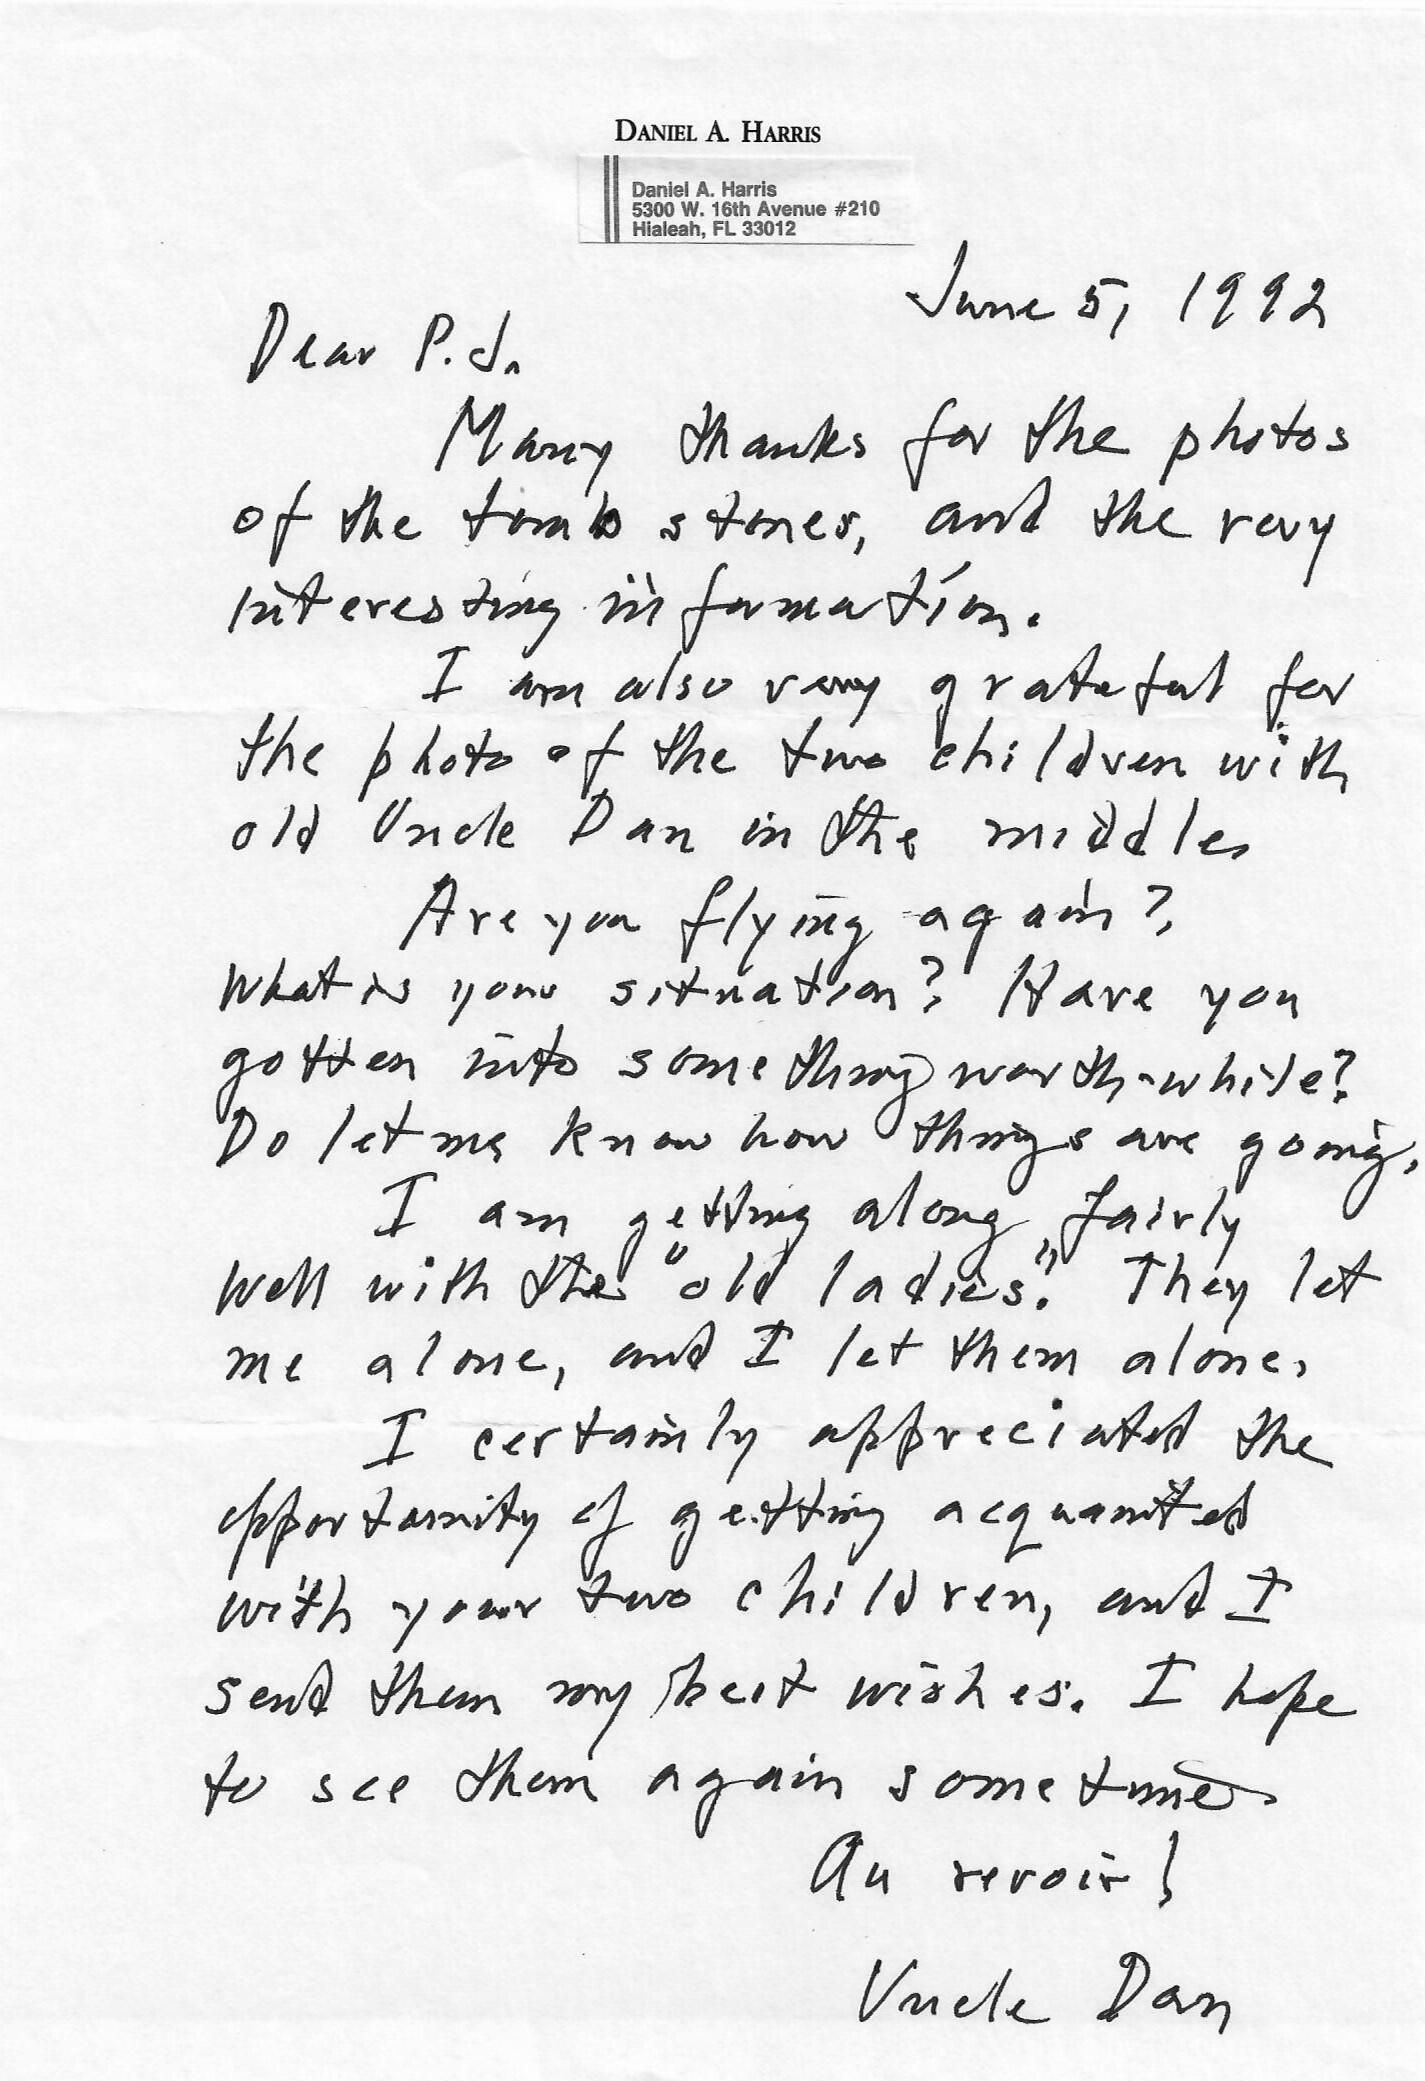 DANIEL A. HARRIS
Daniel A. Harris
5300 W. 16th Avenue #210
Hialeah, FL 33012
June 5, 1992
Dear P.J.
Many thanks for the photos
of the tomb stones, and the very
interesting information.
I am also very grateful for
the photo of the two children with
old Uncle Dan in the middle.
Are you flying again?
What is your situation? Have you
gotten into something worth-while?
Do let me know how things are going.
I am getting along fairly
well with the "old ladies." They let
me alone, and I let them alone.
I certainly appreciated the
opportunity of getting acquainted
with your two children, and I
send them my best wishes. I hope
to see them again sometime.
Au revoir!
Uncle Dan